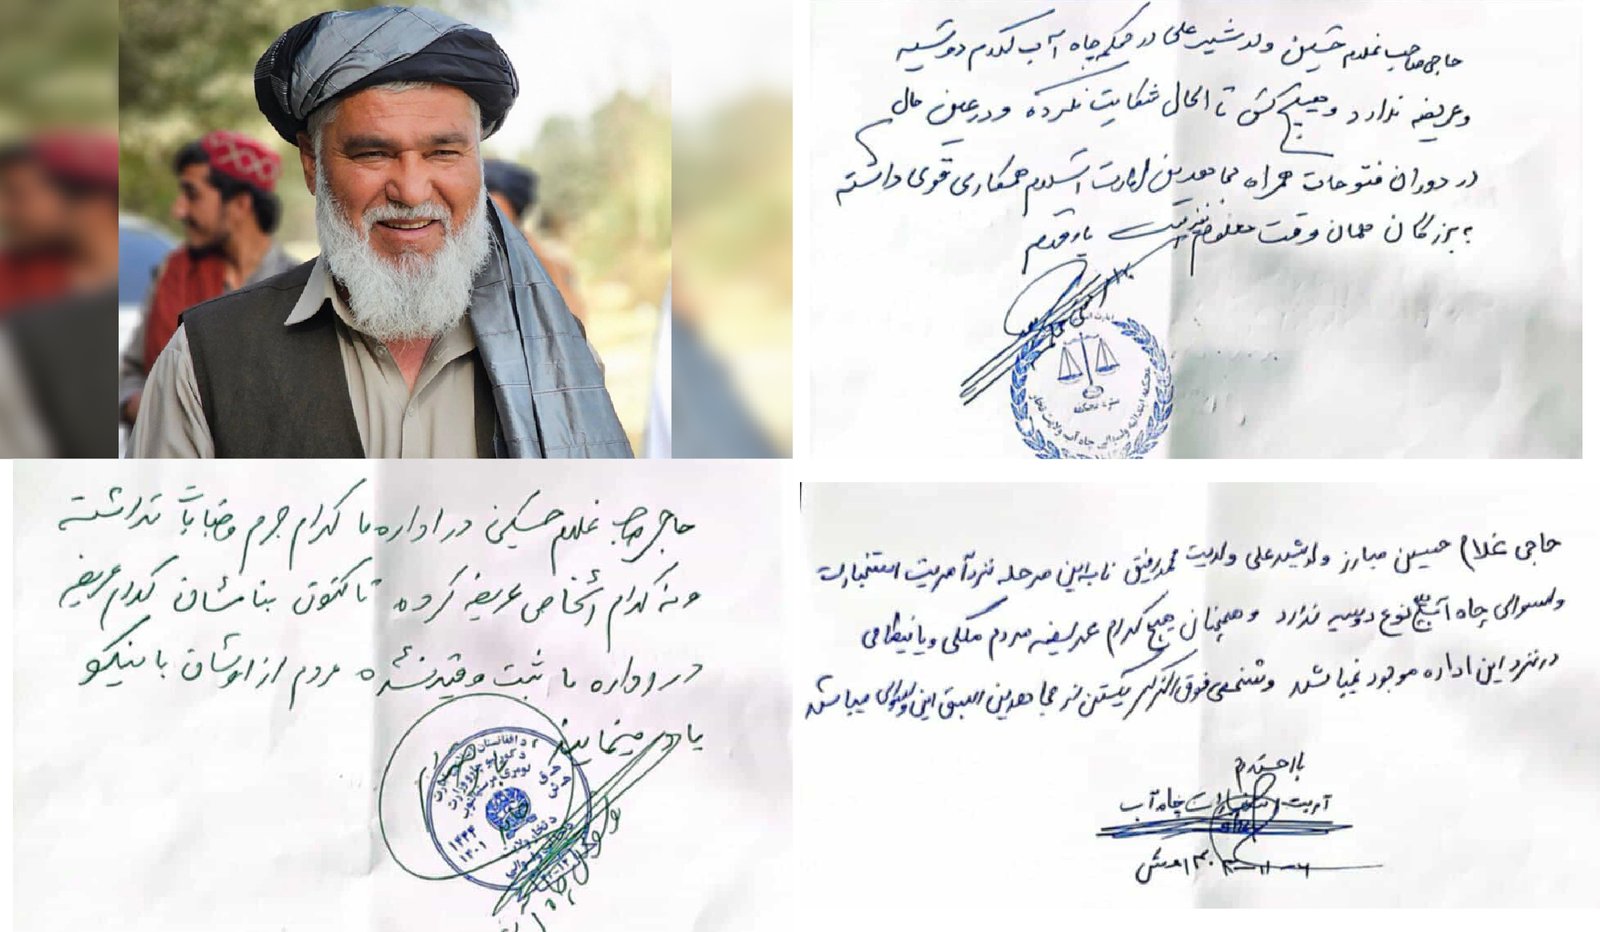 حاجی صاحب غلام حسین ولد شیرعلی در محکمه چاه آب کدام دوسیه
و عریضه ندارد و هیچ کس تا الحال شکایت نکرده و در عین حال
در دوران فتوحات همراه مجاهدین امارت اسلام همکاری قوی داشته
به بزرگان همان وقت معلوم
محکمه ابتدائیه ولسوالی چاه آب ولایت تخار
حاجی صاحب غلام حسین در اداره ما کدام جرم نداشته
و نه کدام اشخاص عریضه کرده تا کنون بنامشان کدام عریضه
در اداره ما ثبت و قید نشده مردم از اوشان با نیکو
یاد مینمایند
د افغانستان
د کورنیو چارو وزارت
۱۴۴۴
۱۴۰۱
حاجی غلام حسین مبارز ولد شیدعلی ولدیت محمد رفیق تا به این مرحله نزد آمریت استخبارات
ولسوالی چاه آب هیچ نوع دوسیه ندارد و همچنان هیچ کدام عریضه مردم ملکی و یا نظامی
در نزد این اداره موجود نمیباشد و شخص فوق الذکر یکتن از مجاهدین السبق این ولسوالی میباشد
با احترام
آمریت استخبارات چاه آب